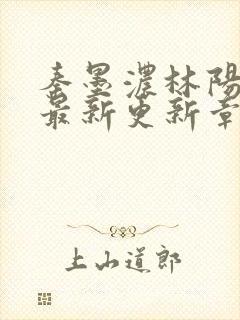 秦墨濃林陽
最新更新章
上山道郎